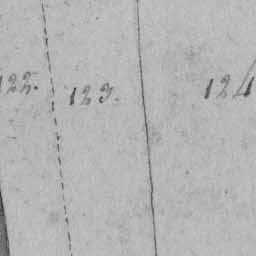 122. 123. 124